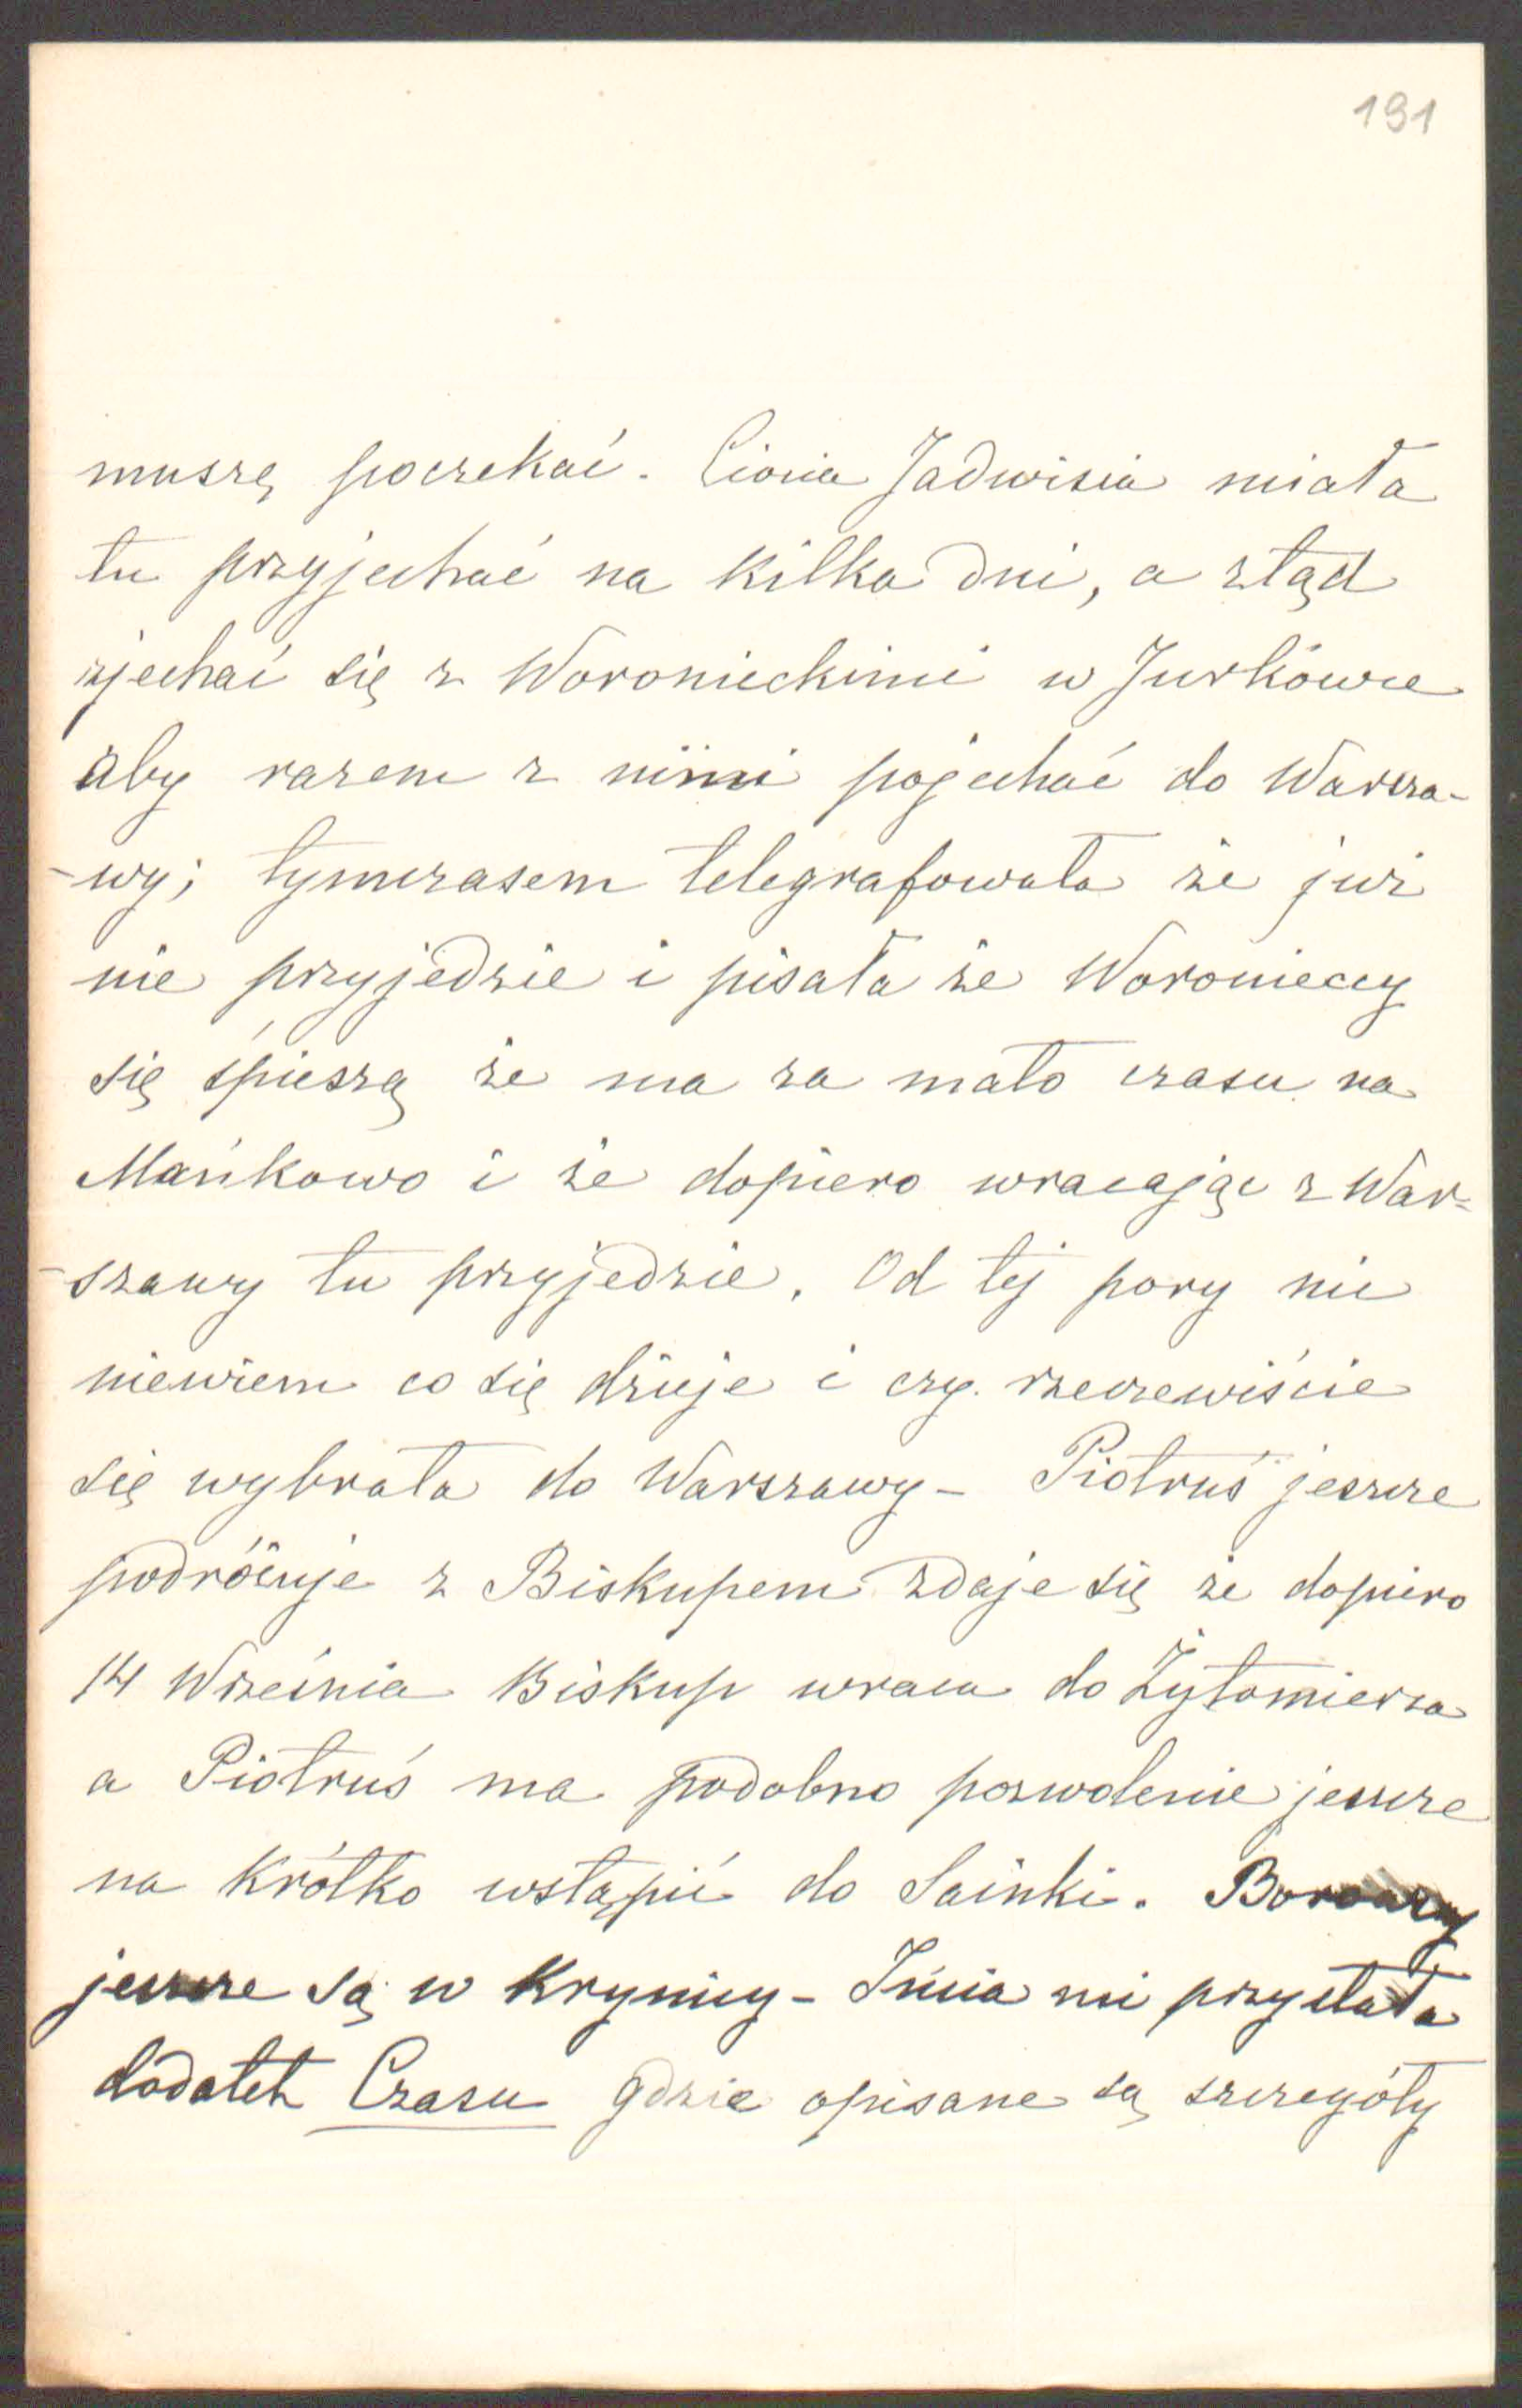 191
muszę poczekać. Ciocia Jadwisia miała
tu przyjechać na kilka dni, a ztąd
zjechać się z Woronieckimi w Jurkówce
aby razem z nimi pojechać do Warsza-
-wy; tymczasem telegrafowała że już
nie przyjedzie i pisała że Woronieccy
się śpieszą że ma za mało czasu na
Mańkowo i że dopiero wracając z War-
-szawy tu przyjedzie. Od tej pory nic
niewiem co się dzieje i czy rzeczewiście
się wybrała do Warszawy - Piotruś jeszcze
podróżuje z Biskupem zdaje się że dopiero
14 Września Biskup wraca do Żytomierza
a Piotruś ma podobno pozwolenie jeszcze
na krótko wstąpić do Sainki.
jeszcze są w Krynicy - mi przysłała
dodatek Czasu gdzie opisane są szczegóły